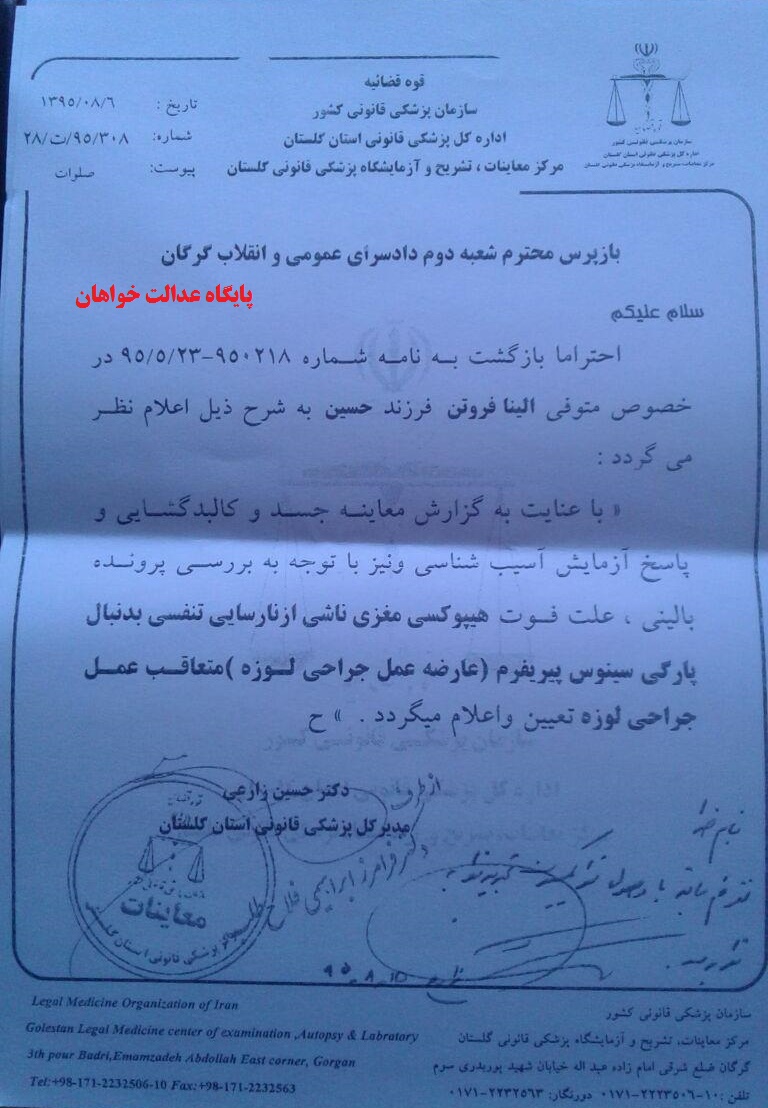 قوه قضائیه
سازمان پزشکی قانونی کشور
اداره کل پزشکی قانونی استان گلستان
مرکز معاینات ، تشریح و آزمایشگاه پزشکی قانونی گلستان
تاریخ : ۱۳۹۵/۰۸/۶
شماره: ۲۸/ت/۹۵/۳۰۸
پیوست: صلوات
سازمان پزشکی قانونی کشور
اداره کل پزشکی قانونی استان گلستان
مرکز معاینات، تشریح و آزمایشگاه پزشکی قانونی گلستان
بازپرس محترم شعبه دوم دادسرای عمومی و انقلاب گرگان
پایگاه عدالت خواهان
سلام علیکم
احتراما بازگشت به نامه شماره ۹۵۰۲۱۸-۹۵/۵/۲۳ در
خصوص متوفی الینا فروتن فرزند حسین به شرح ذیل اعلام نظر
می گردد :
« با عنایت به گزارش معاینه جسد و کالبدگشایی و
پاسخ آزمایش آسیب شناسی ونیز با توجه به بررسی پرونده
بالینی ، علت فوت هیپوکسی مغزی ناشی ازنارسایی تنفسی بدنبال
پارگی سینوس پیریفرم (عارضه عمل جراحی لوزه )متعاقب عمل
جراحی لوزه تعیین واعلام میگردد . » ح
دکتر حسین زارعی
مدیرکل پزشکی قانونی استان گلستان
از طرف
دکتر فرامرز ابراهیمی فلاح طلب
معاینات
بنام خدا
۹۵.۸.۱۵
Legal Medicine Organization of Iran
Golestan Legal Medicine center of examination ,Autopsy & Labratory
3th pour Badri,Emamzadeh Abdollah East corner, Gorgan
Tel:+98-171-2232506-10 Fax:+98-171-2232563
سازمان پزشکی قانونی کشور
مرکز معاینات، تشریح و آزمایشگاه پزشکی قانونی گلستان
گرگان ضلع شرقی امام زاده عبد اله خیابان شهید پوربدری سوم
تلفن :۱۰-۲۲۲۳۵۰۶-۰۱۷۱ دورنگار: ۲۲۳۲۵۶۳-۰۱۷۱